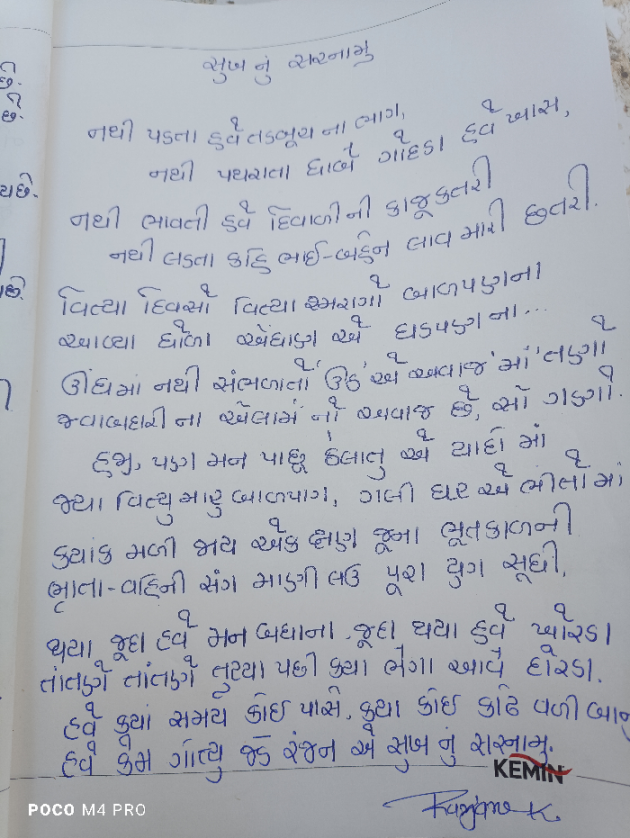 સુખ નું સરનામુ
નથી પડતા હવે તડબૂચ ના ભાગ,
નથી પથરાતા ધાબે ગોદડા હવે ખાસ,
નથી ભાવતી હવે દિવાળી ની કાજૂકતરી
નથી લડતા કહિ ભાઈ-બહેન લાવ મારી છતરી.
વિત્યા દિવસો વિત્યા સ્મરણો બાળપણના
આવ્યા ધોળા એંધાણ એ ઘડપણ ના...
ઊંઘમાં નથી સંભળાતો 'ઊઠ' એ અવાજ 'માં' તણો
જવાબદારી ના એલામૅ નો અવાજ છે, સૌ ગણો.
હજુ, પણ મન પાછૂ ઠેલાતુ એ યાદો માં
જ્યા વિત્યુ મારુ બાળપણ, ગલી ઘર એ ભીતો માં
ક્યાંક મળી જાય એક ક્ષણ જૂના ભૂતકાળની
ભ્રાતા-વહિની સંગ માણી લઉ પૂરા યુગ સૂધી.
થયા જૂદા હવે મન બધાના જૂદા થયા હવે ખોરડા
તાંતણે તાંતણે તુટ્યા પછી ક્યા ભેગા આવે દોરડા.
હવે ક્યાં સમય કોઈ પાસે, ક્યા કોઈ કાઢે વળી બાનુ
હવે કેમ ગોત્યુ જડે રંજન એ સુખ નું સરનામુ.
KEMIN
Ranjane K.
છે.
છે.
POCO M4 PRO